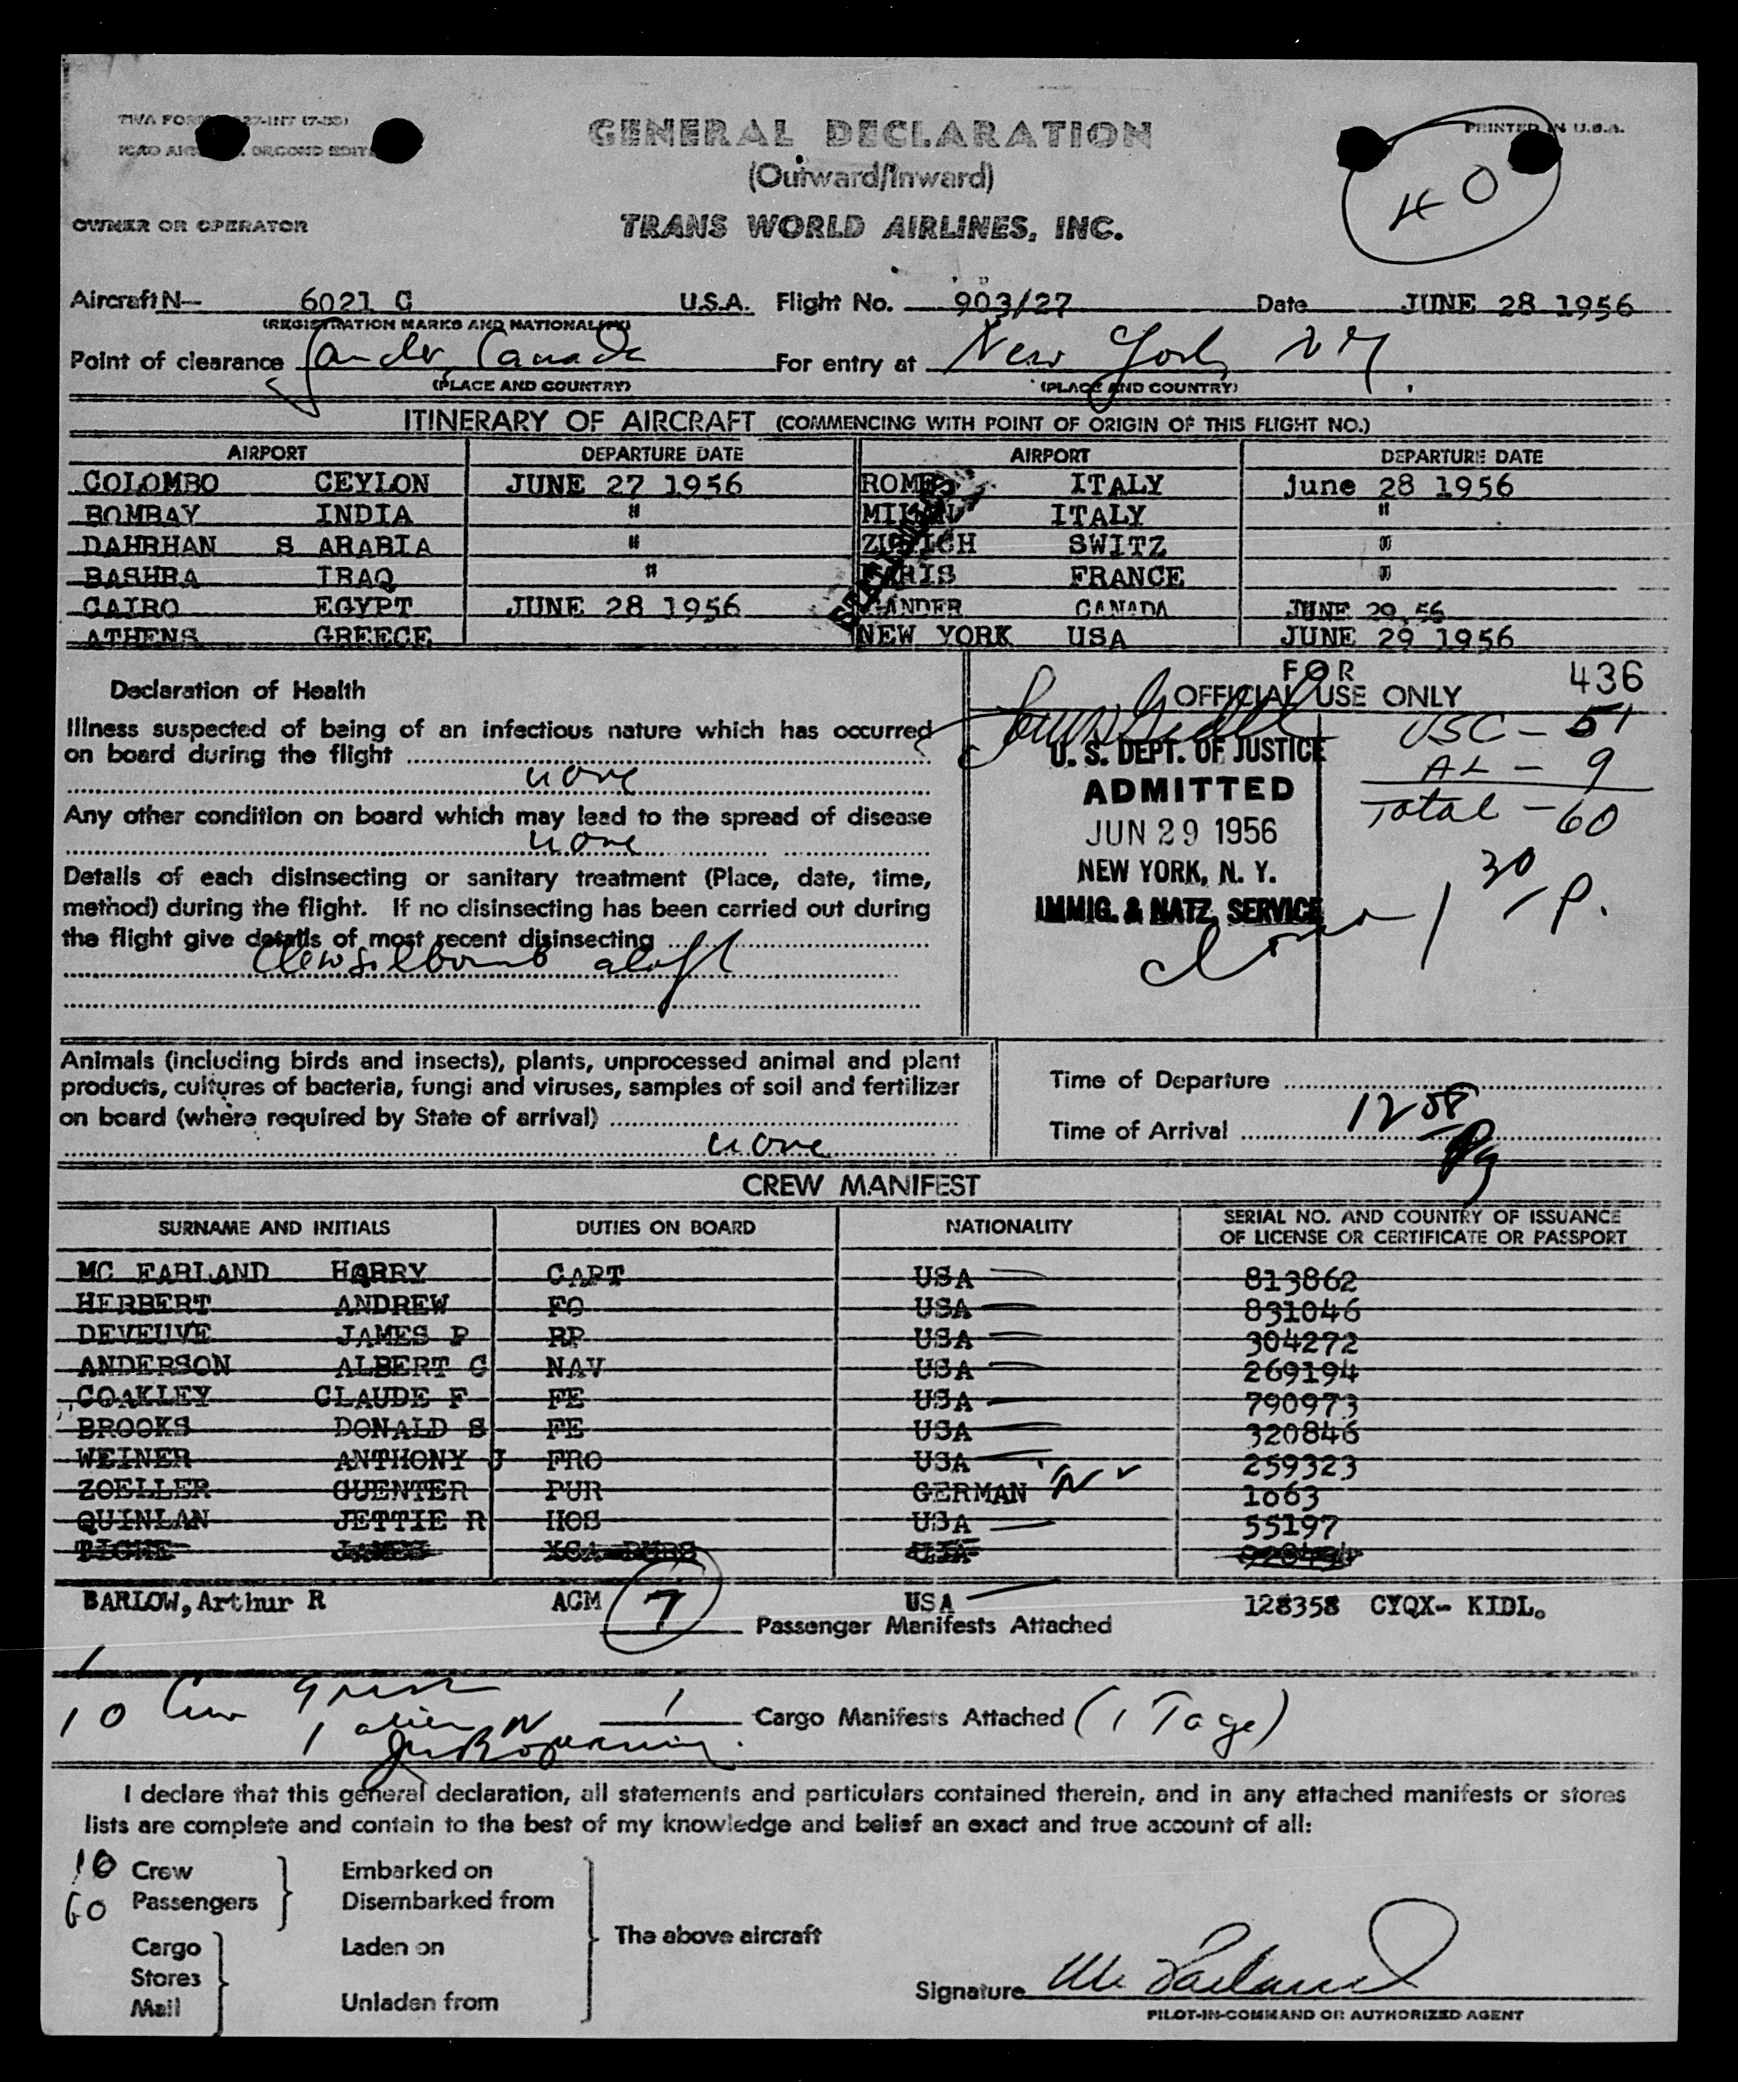 GENERAL DECLARATION
PRINTED IN U.S.A.
(Outward/Inward)
40
OWNER OR OPERATOR
TRANS WORLD AIRLINES, INC.
Aircraft N- 6021 C U.S.A. Flight No. 903/27 Date JUNE 28 1956
(REGISTRATION MARKS AND NATIONALITY)
Point of clearance Gander, Canada For entry at New York, NY.
(PLACE AND COUNTRY) (PLACE AND COUNTRY)
ITINERARY OF AIRCRAFT (COMMENCING WITH POINT OF ORIGIN OF THIS FLIGHT NO.)
AIRPORT DEPARTURE DATE AIRPORT DEPARTURE DATE
COLOMBO CEYLON JUNE 27 1956 ROME ITALY june 28 1956
BOMBAY INDIA " MILAN ITALY "
DAHRHAN S ARABIA " ZURICH SWITZ "
BASHRA IRAQ " PARIS FRANCE "
CAIRO EGYPT JUNE 28 1956 GANDER CANADA JUNE 29, 56
ATHENS GREECE NEW YORK USA JUNE 29 1956
FOR
OFFICIAL USE ONLY
436
Declaration of Health
Illness suspected of being of an infectious nature which has occurred
on board during the flight
none
Any other condition on board which may lead to the spread of disease
none
Details of each disinsecting or sanitary treatment (Place, date, time,
method) during the flight. If no disinsecting has been carried out during
the flight give details of most recent disinsecting
aloft
U. S. DEPT. OF JUSTICE
ADMITTED
JUN 29 1956
NEW YORK, N. Y.
IMMIG. & NATZ. SERVICE
USC - 51
AL - 9
Total - 60
1 30 P.
Animals (including birds and insects), plants, unprocessed animal and plant
products, cultures of bacteria, fungi and viruses, samples of soil and fertilizer
on board (where required by State of arrival)
none
Time of Departure
Time of Arrival 12 58
CREW MANIFEST
SURNAME AND INITIALS DUTIES ON BOARD NATIONALITY SERIAL NO. AND COUNTRY OF ISSUANCE
OF LICENSE OR CERTIFICATE OR PASSPORT
MC FARLAND HARRY CAPT USA 813862
HERBERT ANDREW FO USA 831046
DEVEUVE JAMES P RP USA 304272
ANDERSON ALBERT C NAV USA 269194
COAKLEY CLAUDE F FE USA 790973
BROOKS DONALD S FE USA 320846
WEINER ANTHONY J FRO USA 259323
ZOELLER GUENTER PUR GERMAN N 1063
QUINLAN JETTIE R HOS USA 55197
BARLOW, Arthur R ACM USA 128358 CYQX- KIDL.
7 Passenger Manifests Attached
10 Crew
1 alien N
1 Cargo Manifests Attached (1 Page)
I declare that this general declaration, all statements and particulars contained therein, and in any attached manifests or stores
lists are complete and contain to the best of my knowledge and belief an exact and true account of all:
10 Crew
60 Passengers
Embarked on
Disembarked from
Cargo
Stores
Mail
Laden on
Unladen from
The above aircraft
Signature Mc Farland
PILOT-IN-COMMAND OR AUTHORIZED AGENT